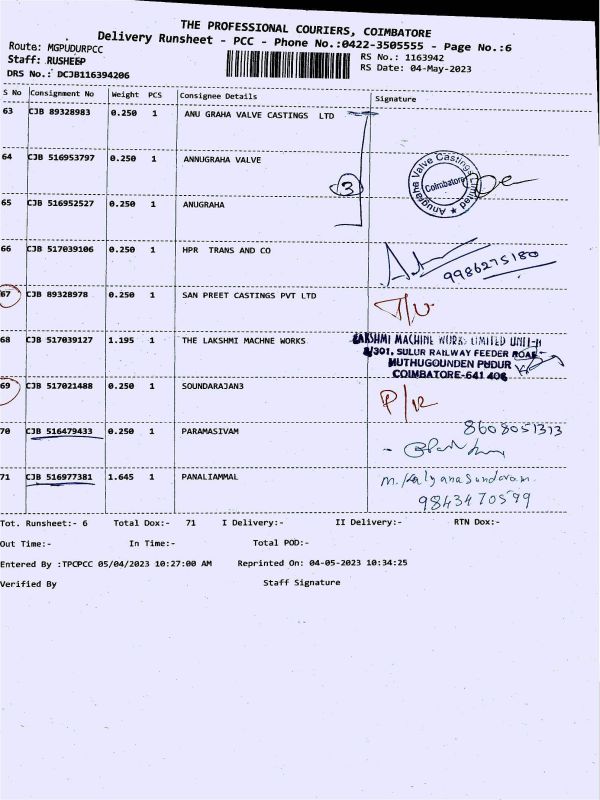 THE PROFESSIONAL COURIERS, COIMBATORE
Delivery Runsheet - PCC - Phone No.:0422-3505555 - Page No.:6
Route: MGPUDURPCC
RS No.: 1163942
Staff: RUSHEEP
RS Date: 04-May-2023
DRS No.: DCJB116394206
S No Consignment No Weight PCS Consignee Details Signature
63 CJB 89328983 0.250 1 ANU GRAHA VALVE CASTINGS LTD
64 CJB 516953797 0.250 1 ANNUGRAHA VALVE
Anugraha Valve Castings Limited
Coimbatore
3
65 CJB 516952527 0.250 1 ANUGRAHA
66 CJB 517039106 0.250 1 HPR TRANS AND CO
9986275180
67 CJB 89328978 0.250 1 SAN PREET CASTINGS PVT LTD
68 CJB 517039127 1.195 1 THE LAKSHMI MACHNE WORKS
LAKSHMI MACHINE WORKS LIMITED UNIT-II
SULUR RAILWAY FEEDER ROAD
MUTHUGOUNDEN PUDUR
COIMBATORE-641 406
69 CJB 517021488 0.250 1 SOUNDARAJAN3
P/R
70 CJB 516479433 0.250 1 PARAMASIVAM
8608051313
71 CJB 516977381 1.645 1 PANALIAMMAL
M. Kalyanasundaram
9843470599
Tot. Runsheet:- 6 Total Dox:- 71 I Delivery:- II Delivery:- RTN Dox:-
Out Time:- In Time:- Total POD:-
Entered By :TPCPCC 05/04/2023 10:27:00 AM Reprinted On: 04-05-2023 10:34:25
Verified By Staff Signature